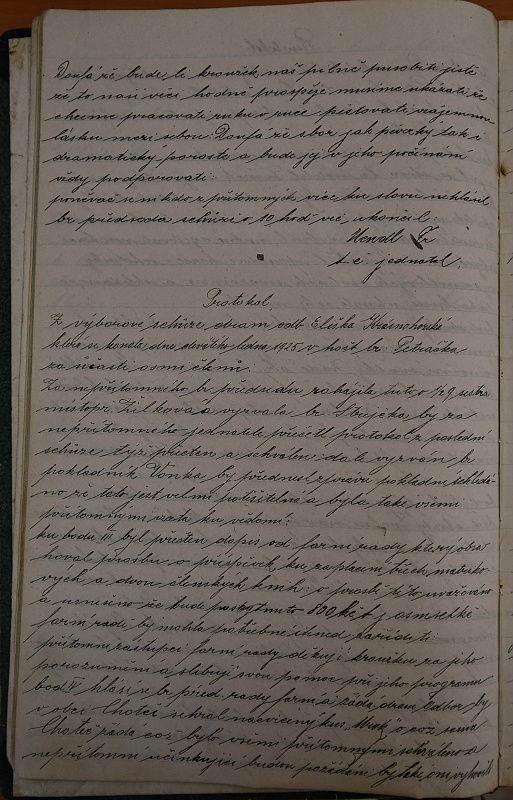 Doufá že bude-li kroužek náš pilně působiti jistě
že to naší věci hodně prospěje musíme ukázati že
chceme pracovati ruku v ruce pěstovati vzájemnou
lásku mezi sebou. Doufá že sbor jak pěvecký tak i
dramatický poroste a bude jej v jeho počínání
vždy podporovati:
poněvač se nikdo z přítomných více ku slovu nehlásil
br. předseda schůzi o 10 hod več. ukončil.
Hendl Fr
t. č. jednatel.
Protokol
Z výborové schůze dram. odb. Eliška Krásnohorská
která se konala dne devátého ledna 1925 v host. br. Petráčka
za účasti osmi členů:
Za nepřítomného br. předsedu zahájila tuto o ½ 9 sestra
místopř. Žilková a vyzvala br. Strejčka by za
nepřítomného jednatele přečetl protokol z poslední
schůze týž přečten a schválen dále vyzván br.
pokladník Vonka by přednesl zprávu pokladní shledá-
no že tato jest velmi potěšitelná a byla také všemi
přítomnými vzata ku vědomí:
ku bodu III byl přečten dopis od farní rady který obsa
hoval prosbu o příspěvek ku zaplacení třech
vých a dvou členských knih o prosbě této uvažováno
a usneseno že bude poskytnuto 800 Kč t. j. osmset kč
farní radě by mohla potřebné ihned zaříditi:
přítomní zástupci farní rady děkují kroužku za jeho
porozumění a slibují svou pomoc při jeho programu
bod IV hlásí se br. před. rady farní a žádá dram. odbor by
v obci Choteč sehrál nacvičený kus „Mrak" o což sama
Choteč žádá což bylo všemi přítomnými schváleno a
nepřítomní účinkující budou požádáni by také oni vyhověli